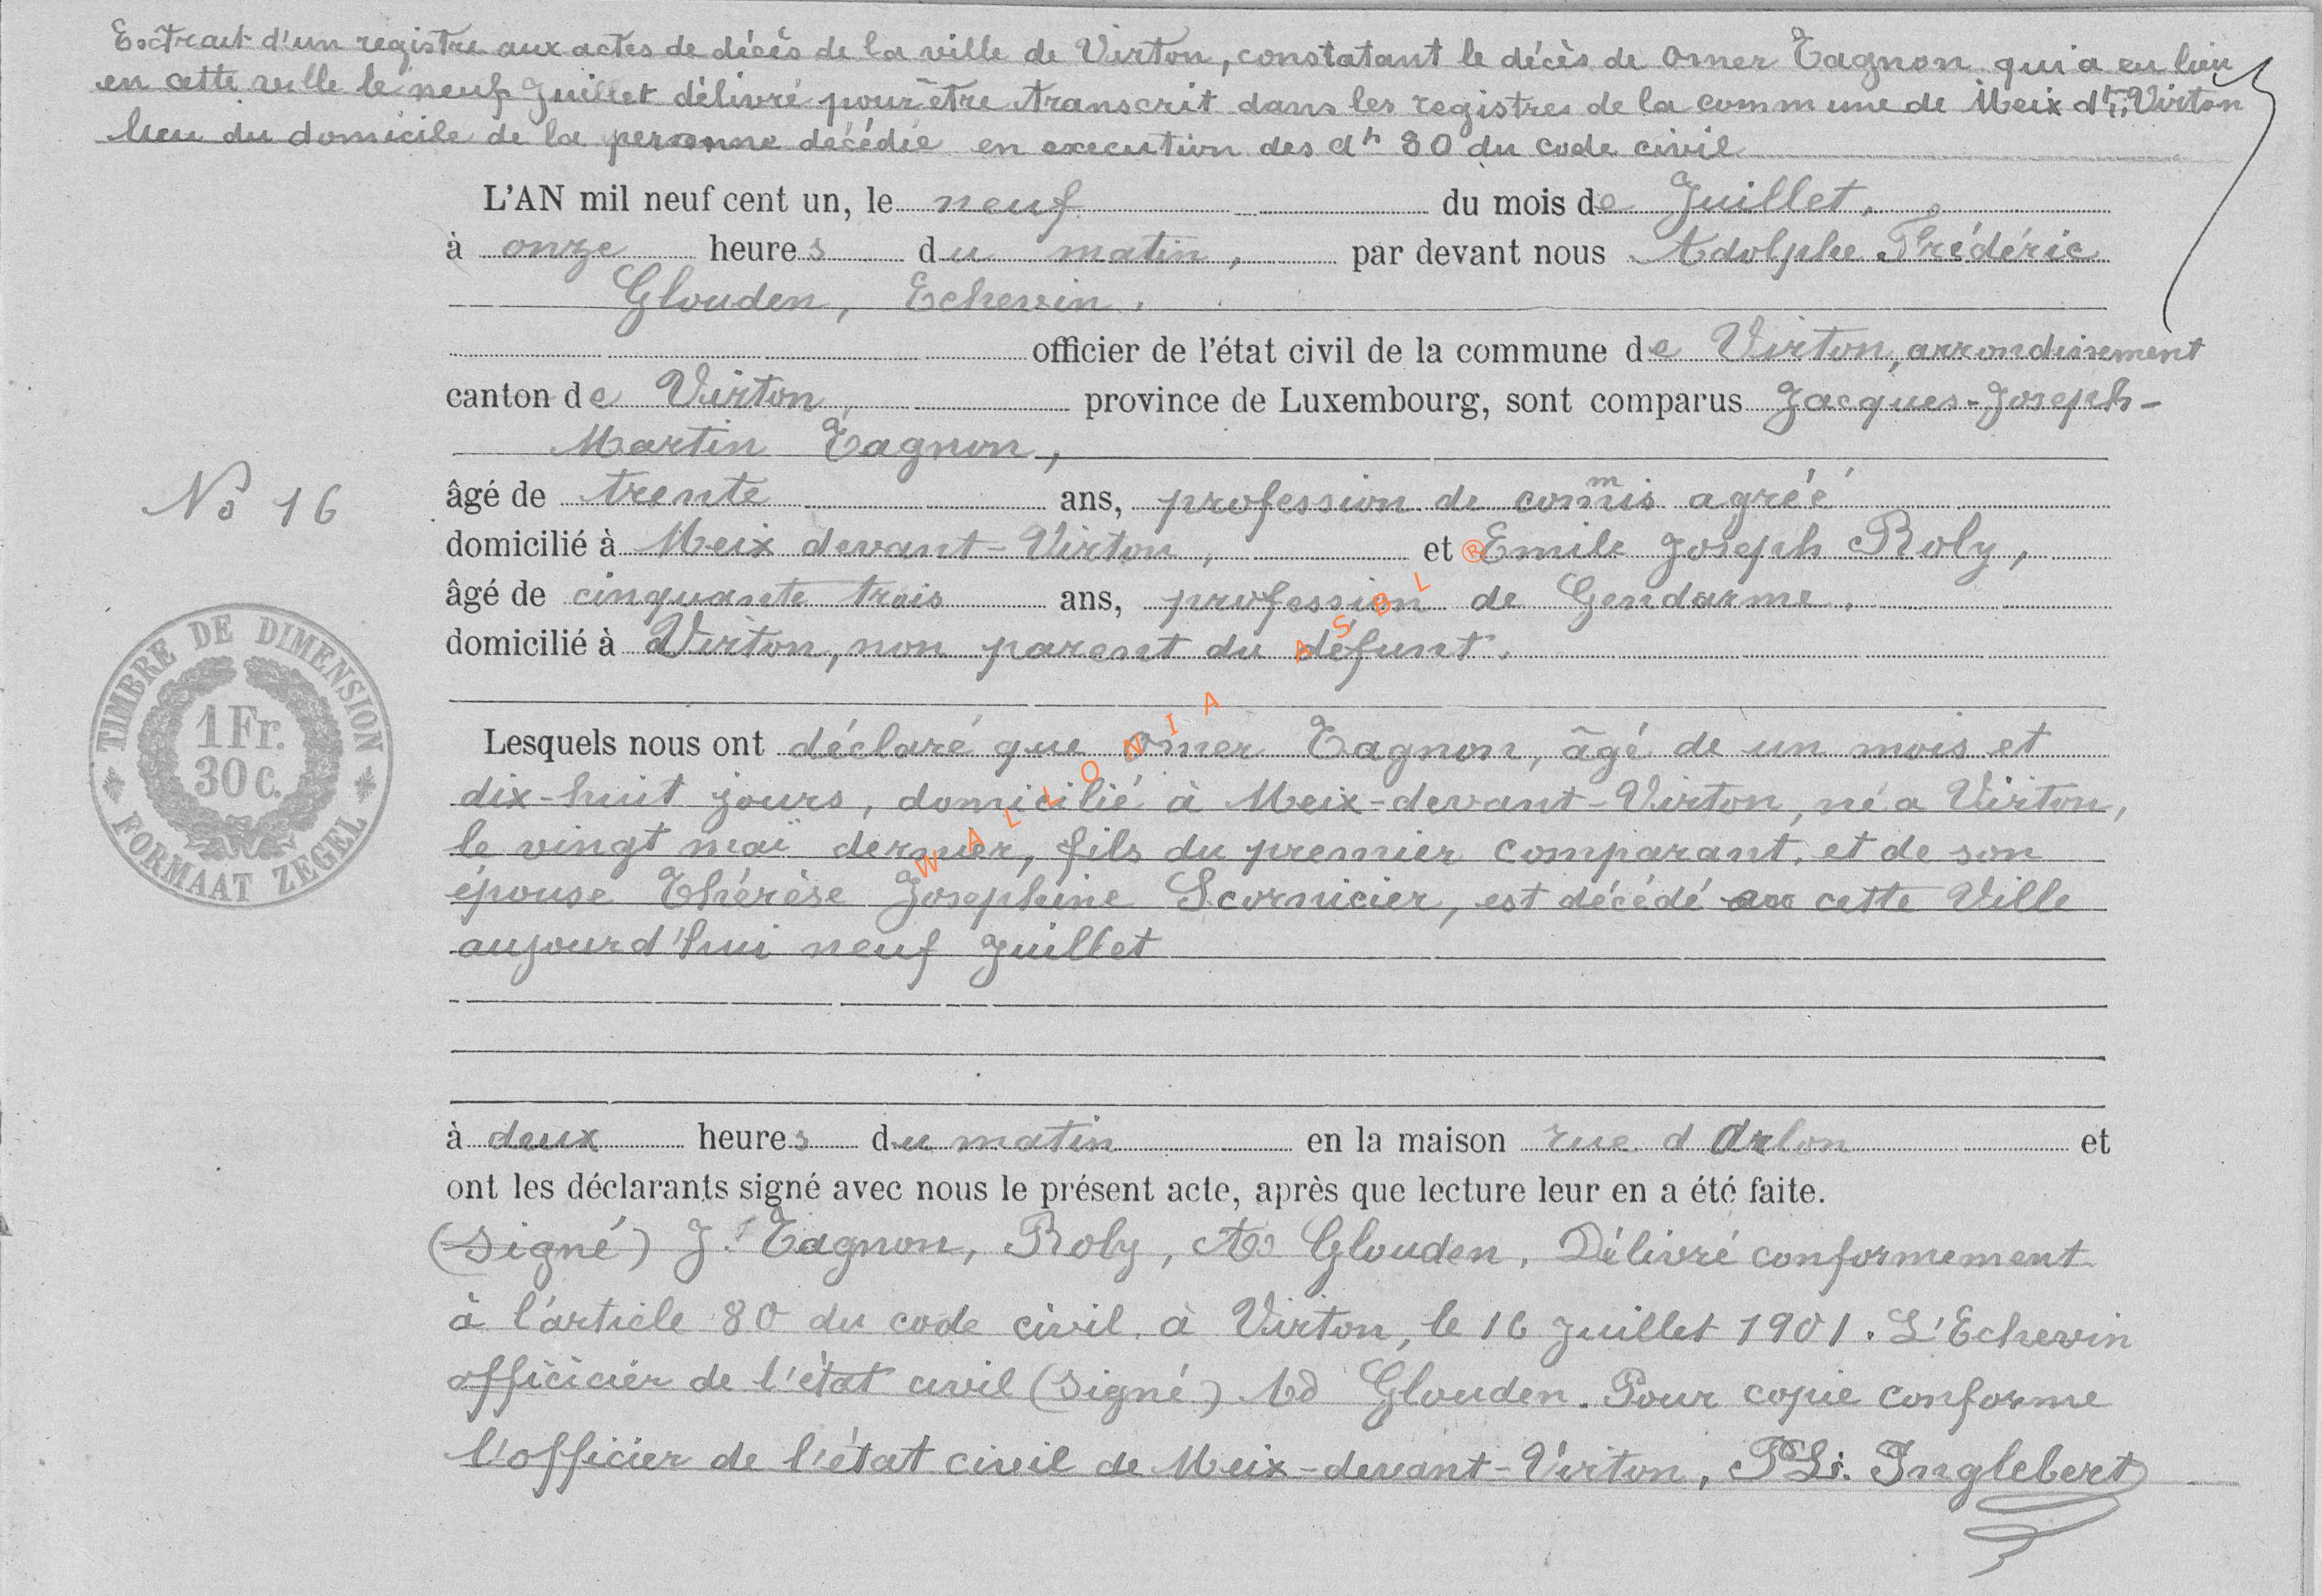 Extrait d'un registre aux actes de décès de la ville de Virton, constatant le décès de Omer Tagnon qui a eu lieu
en cette ville le neuf Juillet délivré pour être transcrit dans les registres de la commune de Meix dt Virton
lieu du domicile de la personne décédée en execution des 80 du code civil
L'AN mil neuf cent un, le neuf du mois de Juillet,
à onze heures du matin, par devant nous Adolphe Frédéric
Glouden, Echevin,
officier de l'état civil de la commune de Virton, arrondissement
canton de Virton, province de Luxembourg, sont comparus Jacques-Joseph-
Martin Tagnon,
No 16
âgé de trente ans, profession de commis agréé
domicilié à Meix devant-Virton, et Emile Joseph Roly,
âgé de cinquante trois ans, profession de Gendarme.
domicilié à Virton, non parent du défunt.
TIMBRE DE DIMENSION
1 Fr.
30 c.
FORMAAT ZEGEL
WALLONIA ASBL ®
Lesquels nous ont déclaré que Omer Tagnon, âgé de un mois et
dix-huit jours, domicilié à Meix-devant-Virton, né a Virton,
le vingt mai dernier, fils du premier comparant, et de son
épouse Thérèse Josephine Scornicier, est décédé cette Ville
aujourd'hui neuf Juillet
à deux heures du matin en la maison rue d Arlon et
ont les déclarants signé avec nous le présent acte, après que lecture leur en a été faite.
(Signé) J. Tagnon, Roly, Ad Glouden, Délivré conformement
à l'article 80 du code civil. à Virton, le 16 Juillet 1901. L'Echevin
officicier de l'état civil (Signé) Ad Glouden. Pour copie conforme
l'officier de l'état civil de Meix-devant-Virton, Inglebert